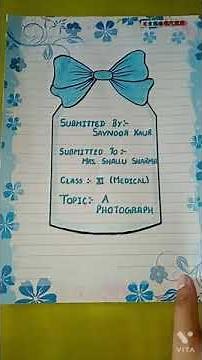 SUBMITTED BY:-
SAVNOOR KAUR
SUBMITTED TO:-
MRS. SHALLU SHARMA
CLASS:- XI (MEDICAL)
TOPIC:- A
PHOTOGRAPH
VITA